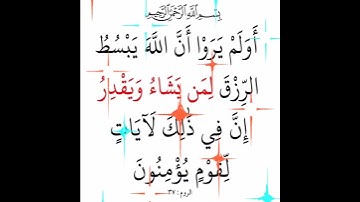 بِسْمِ اللَّهِ الرَّحْمَٰنِ الرَّحِيمِ
أَوَلَمْ يَرَوْا أَنَّ اللَّهَ يَبْسُطُ
الرِّزْقَ لِمَن يَشَاءُ وَيَقْدِرُ
إِنَّ فِي ذَٰلِكَ لَآيَاتٍ
لِّقَوْمٍ يُؤْمِنُونَ
الروم: ٣٧